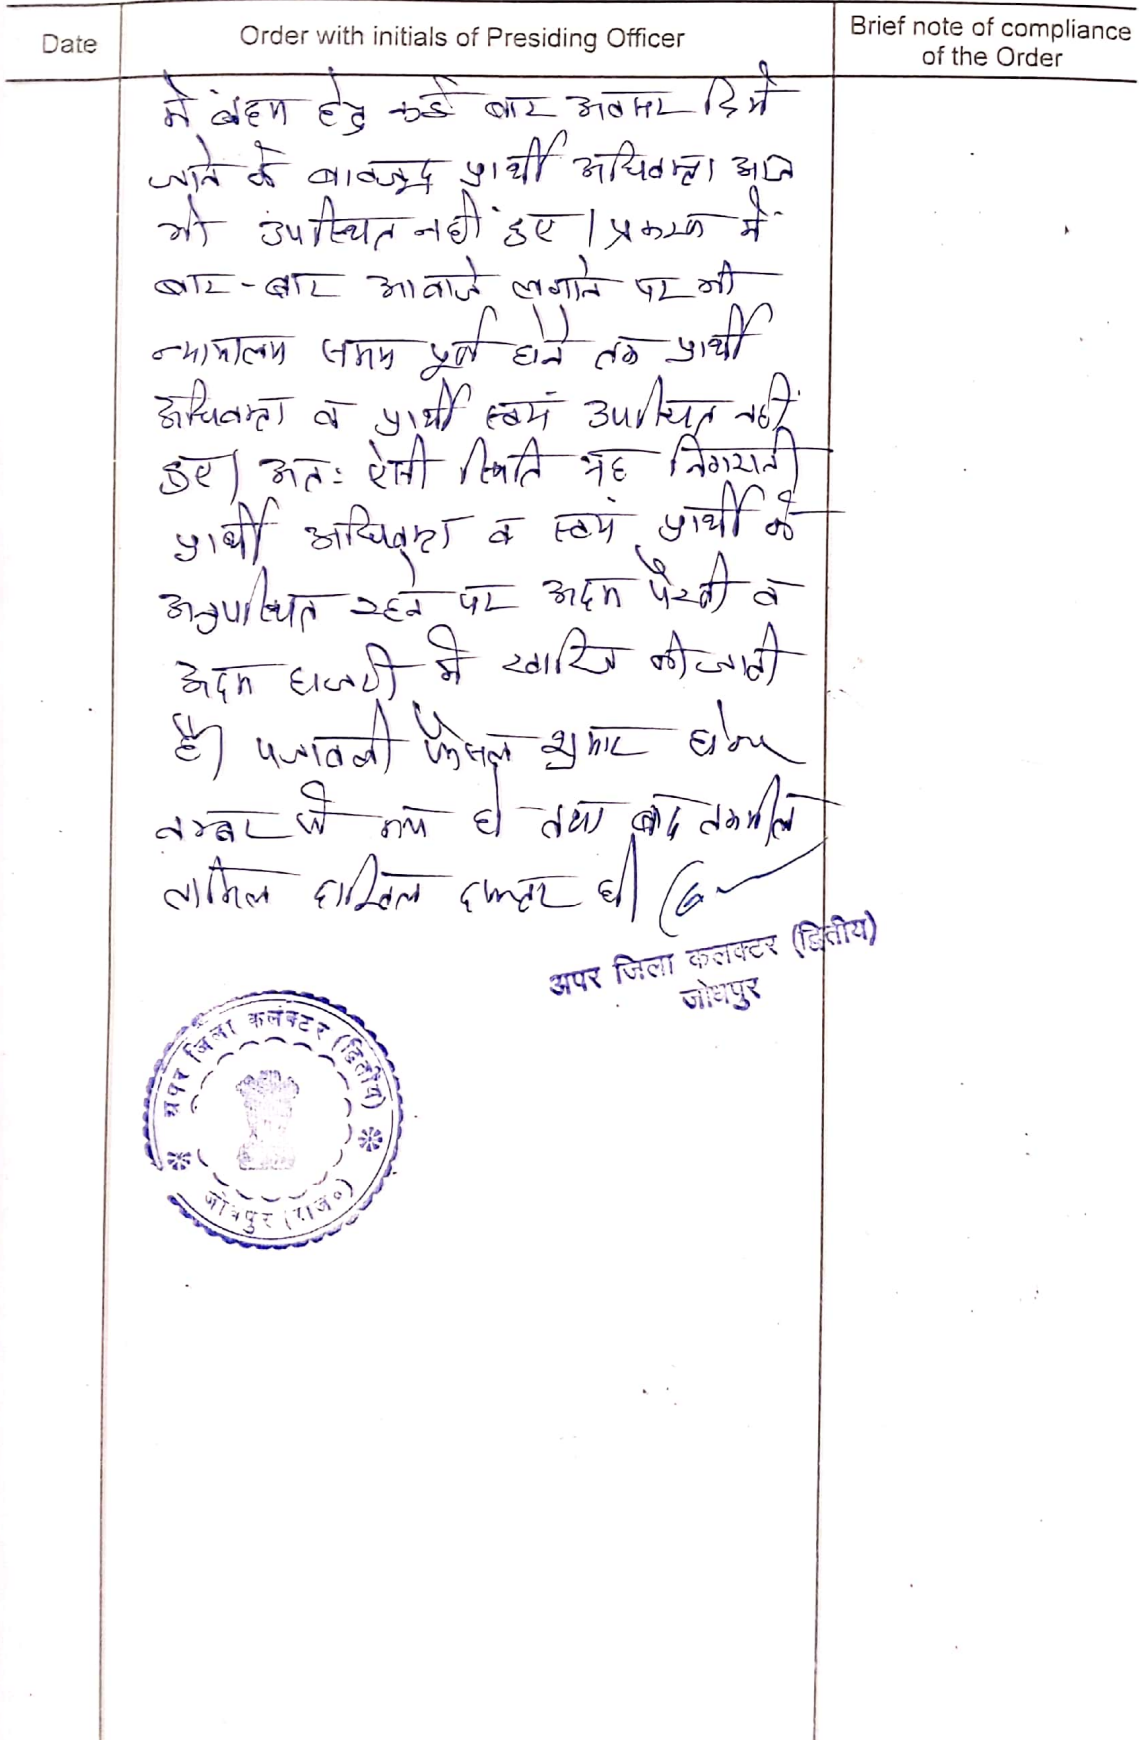 Date
Order with initials of Presiding Officer
Brief note of compliance
of the Order
में बहस हेतु कई बार अवसर दिये
जाने के बावजूद प्रार्थी अधिवक्ता आज
भी उपस्थित नहीं हुए। प्रकरण में
बार-बार आवाजे लगाने पर भी
न्यायालय समय पूर्ण होने तक प्रार्थी
अधिवक्ता व प्रार्थी स्वयं उपस्थित नहीं
हुए। अतः ऐसी स्थिति यह निगरानी
प्रार्थी अधिवक्ता व स्वयं प्रार्थी के
अनुपस्थित रहने पर अदम पैरवी व
अदम हाजरी में खारिज की जाती
है। पत्रावली फैसल शुमार होकर
नम्बर से कम हो तथा बाद तकमील
तामिल दाखिल दफ्तर हो।
अपर जिला कलक्टर (द्वितीय)
जोधपुर
अपर जिला कलक्टर (द्वितीय)
जोधपुर (राज०)